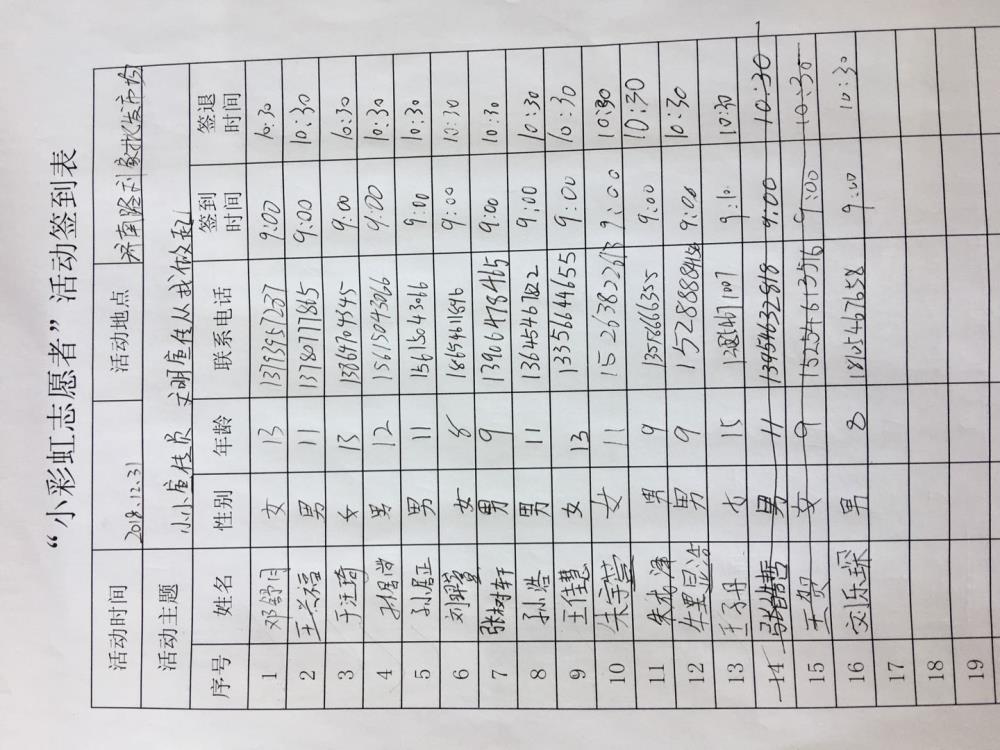 “小彩虹志愿者”活动签到表
活动时间 2018.12.31 活动地点
活动主题 小小宣传员 文明宣传从我做起
序号 姓名 性别 年龄 联系电话 签到时间 签退时间
1 邓舒月 女 13 13793957237 9:00 10:30
2 王兴福 男 11 13780777865 9:00 10:30
3 于汪琦 女 13 13064704345 9:00 10:30
4 男 12 15615043066 9:00 10:30
5 孙居正 男 11 15615043066 9:00 10:30
6 女 8 18654611846 9:00 10:30
7 张树轩 男 9 13906478465 9:00 10:30
8 孙浩 男 11 13645467822 9:00 10:30
9 王佳慧 女 13 13356644655 9:00 10:30
10 女 11 9:00 10:30
11 朱成泽 男 9 13586666355 9:00 10:30
12 男 9 9:00 10:30
13 王子丹 女 15 9:10 10:30
14 男 11 9:00 10:30
15 王贺 女 9 15254613576 9:00 10:30
16 刘乐琛 男 8 18105467658 9:00 10:30
17
18
19